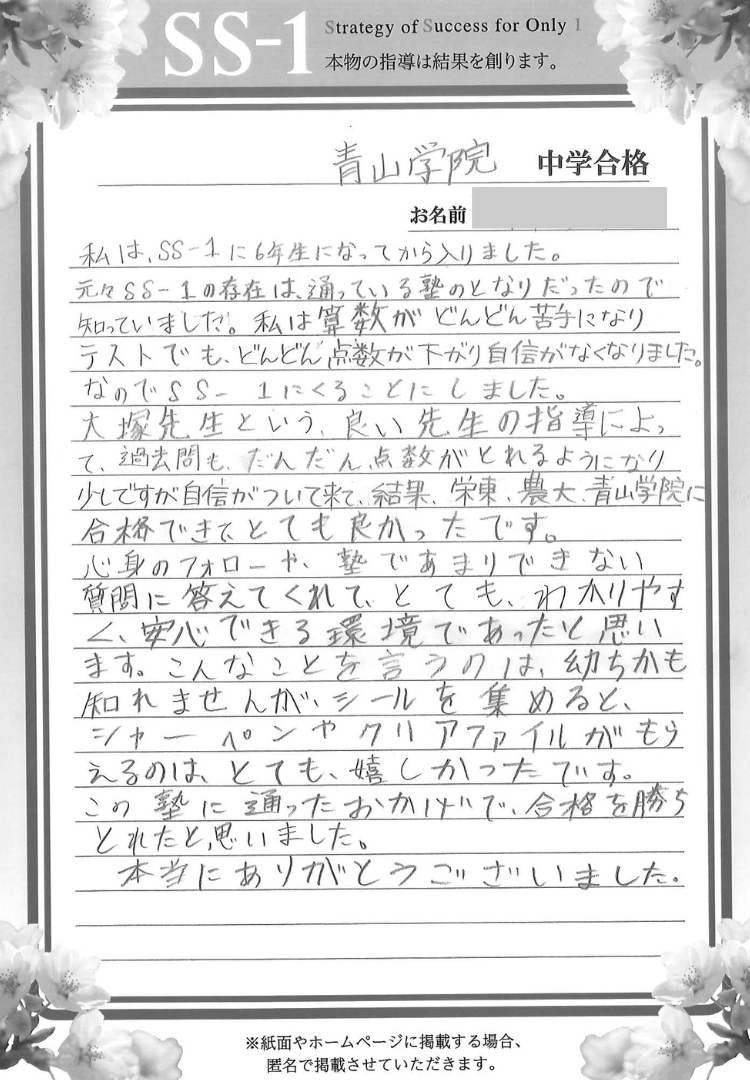 SS-1
Strategy of Success for Only 1
本物の指導は結果を創ります。
青山学院 中学合格
お名前
私は、SS-1に6年生になってから入りました。
元々SS-1の存在は、通っている塾のとなりだったので
知っていました。私は算数がどんどん苦手になり
テストでも、どんどん点数が下がり自信がなくなりました。
なのでSS-1にくることにしました。
大塚先生という、良い先生の指導によっ
て、過去問も、だんだん点数がとれるようになり
少しですが自信がついて来て、結果、栄東、農大、青山学院に
合格できて、とても良かったです。
心身のフォローや、塾であまりできない
質問に答えてくれて、とても、わかりやす
く、安心できる環境であったと思い
ます。こんなことを言うのは、幼ちかも
知れませんが、シールを集めると、
シャーペンやクリアファイルがもら
えるのは、とても、嬉しかったです。
この塾に通ったおかげで、合格を勝ち
とれたと、思いました。
本当にありがとうございました。
※紙面やホームページに掲載する場合、
匿名で掲載させていただきます。